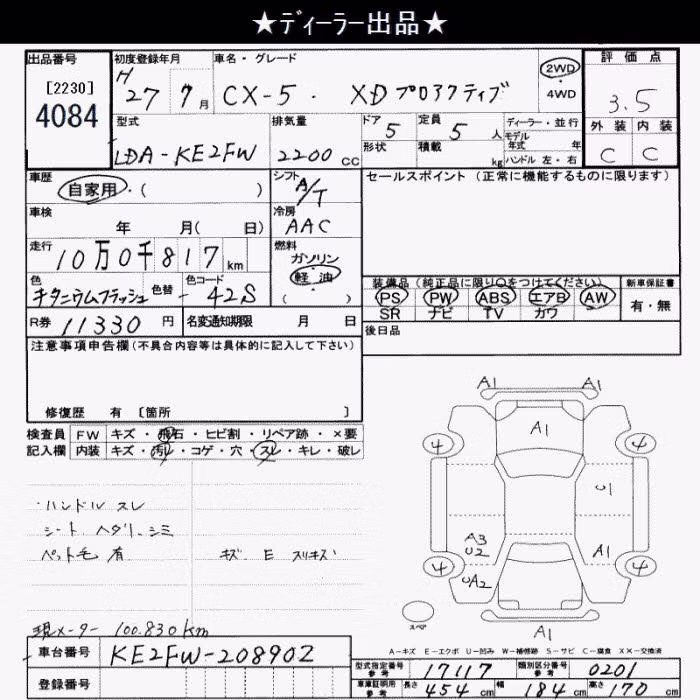 ★ディーラー出品★
出品番号 初度登録年月 車名・グレード 評価点
[2230]
4084
H 27 7月 CX-5・ XDプロアクティブ 2WD・4WD 3.5
型式 排気量 ドア 5 定員 5人 ディーラー・並行 外装 内装
LDA-KE2FW 2200cc 形状 積載 kg モデル年式 年 C C
ハンドル 左・右
車歴 シフト A/T セールスポイント (正常に機能するものに限ります)
自家用・( )
車検 冷房
年 月( 日) AAC
走行 10万0千817km 燃料
ガソリン・軽油
( )
色 色替 色コード 装備品(純正品に限り○をつけてください) 新車保証書
チタニウムフラッシュ - 42S PS PW ABS エアB AW 有・無
SR ナビ TV カワ
R券 11330円 名変通知期限 月 日 後日品
注意事項申告欄(不具合内容等は具体的に記入して下さい)
修復歴 有 [箇所 ]
検査員 FW キズ・飛石・ヒビ割・リペア跡・×要
記入欄 内装 キズ・汚レ・コゲ・穴・スレ・キレ・破レ
・ハンドル スレ
シート ヘタリ、シミ
ペット毛 有 キズ E スリキズ
現メーター 100.830km
A1 A1
A1
4 4
U1
A3
U2 A1
4 4
UA2
スペア
A1
A-キズ E-エクボ U-凹み W-補修跡 S-サビ C-腐食 XX-交換済
車台番号 KE2FW-208902
登録番号
型式指定番号 参考 17117 類別区分番号 参考 0201
車庫証明用 参考 長さ 454cm 幅 184cm 高さ 170cm